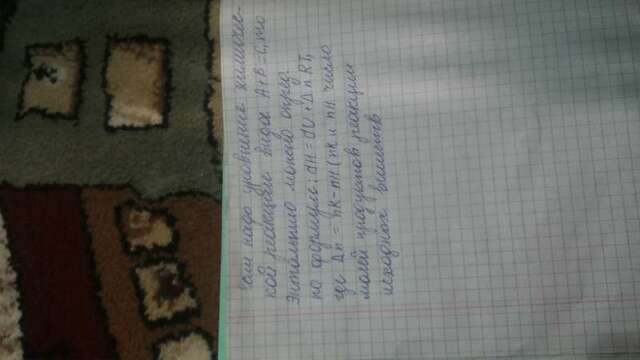 Если надо уровнение химичес-
кой реакции вида A+B=C, то
Энтальпию можно опред.
по формуле: dH = dU + Δ n RT,
где Δn = nК-nН (nК и nН число
молей продуктов реакции
исходных веществ